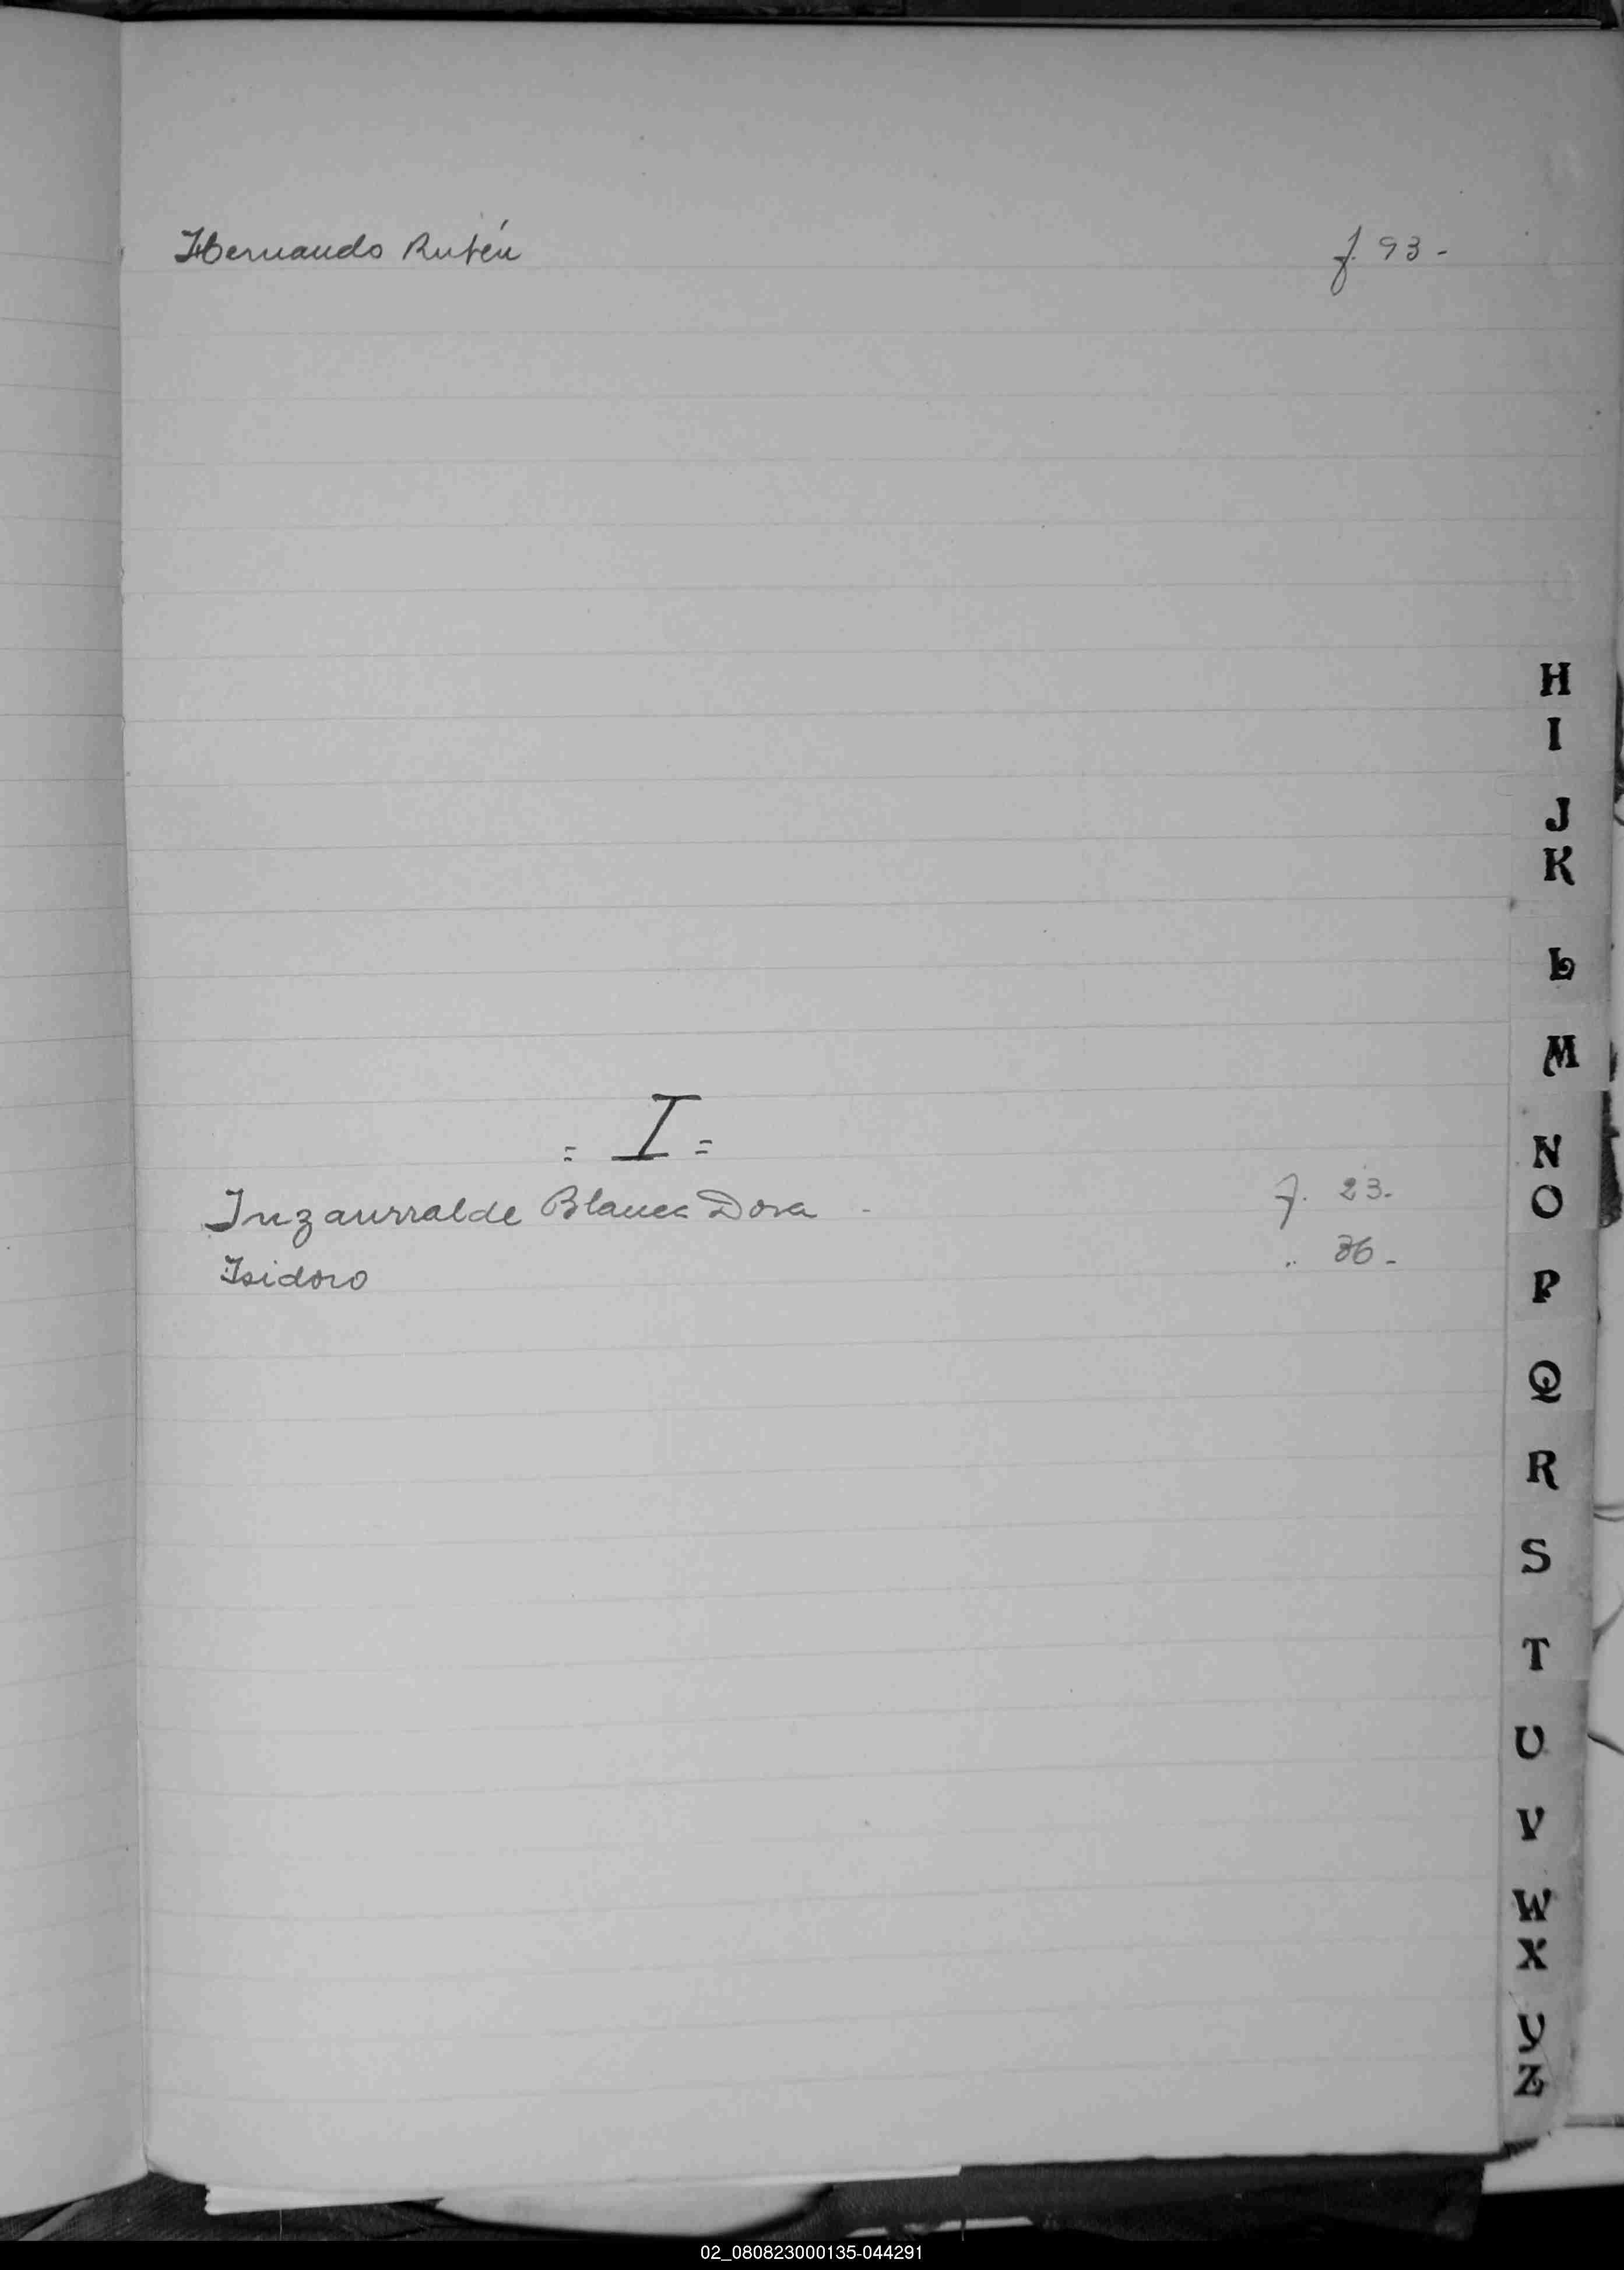 Hernando Rubén f. 93-
= I =
Inzaurralde Blanca Dora - f. 23.
Isidoro .. 36-
H
I
J
K
L
M
N
O
P
Q
R
S
T
U
V
W
X
Y
Z
02_080823000135-044291